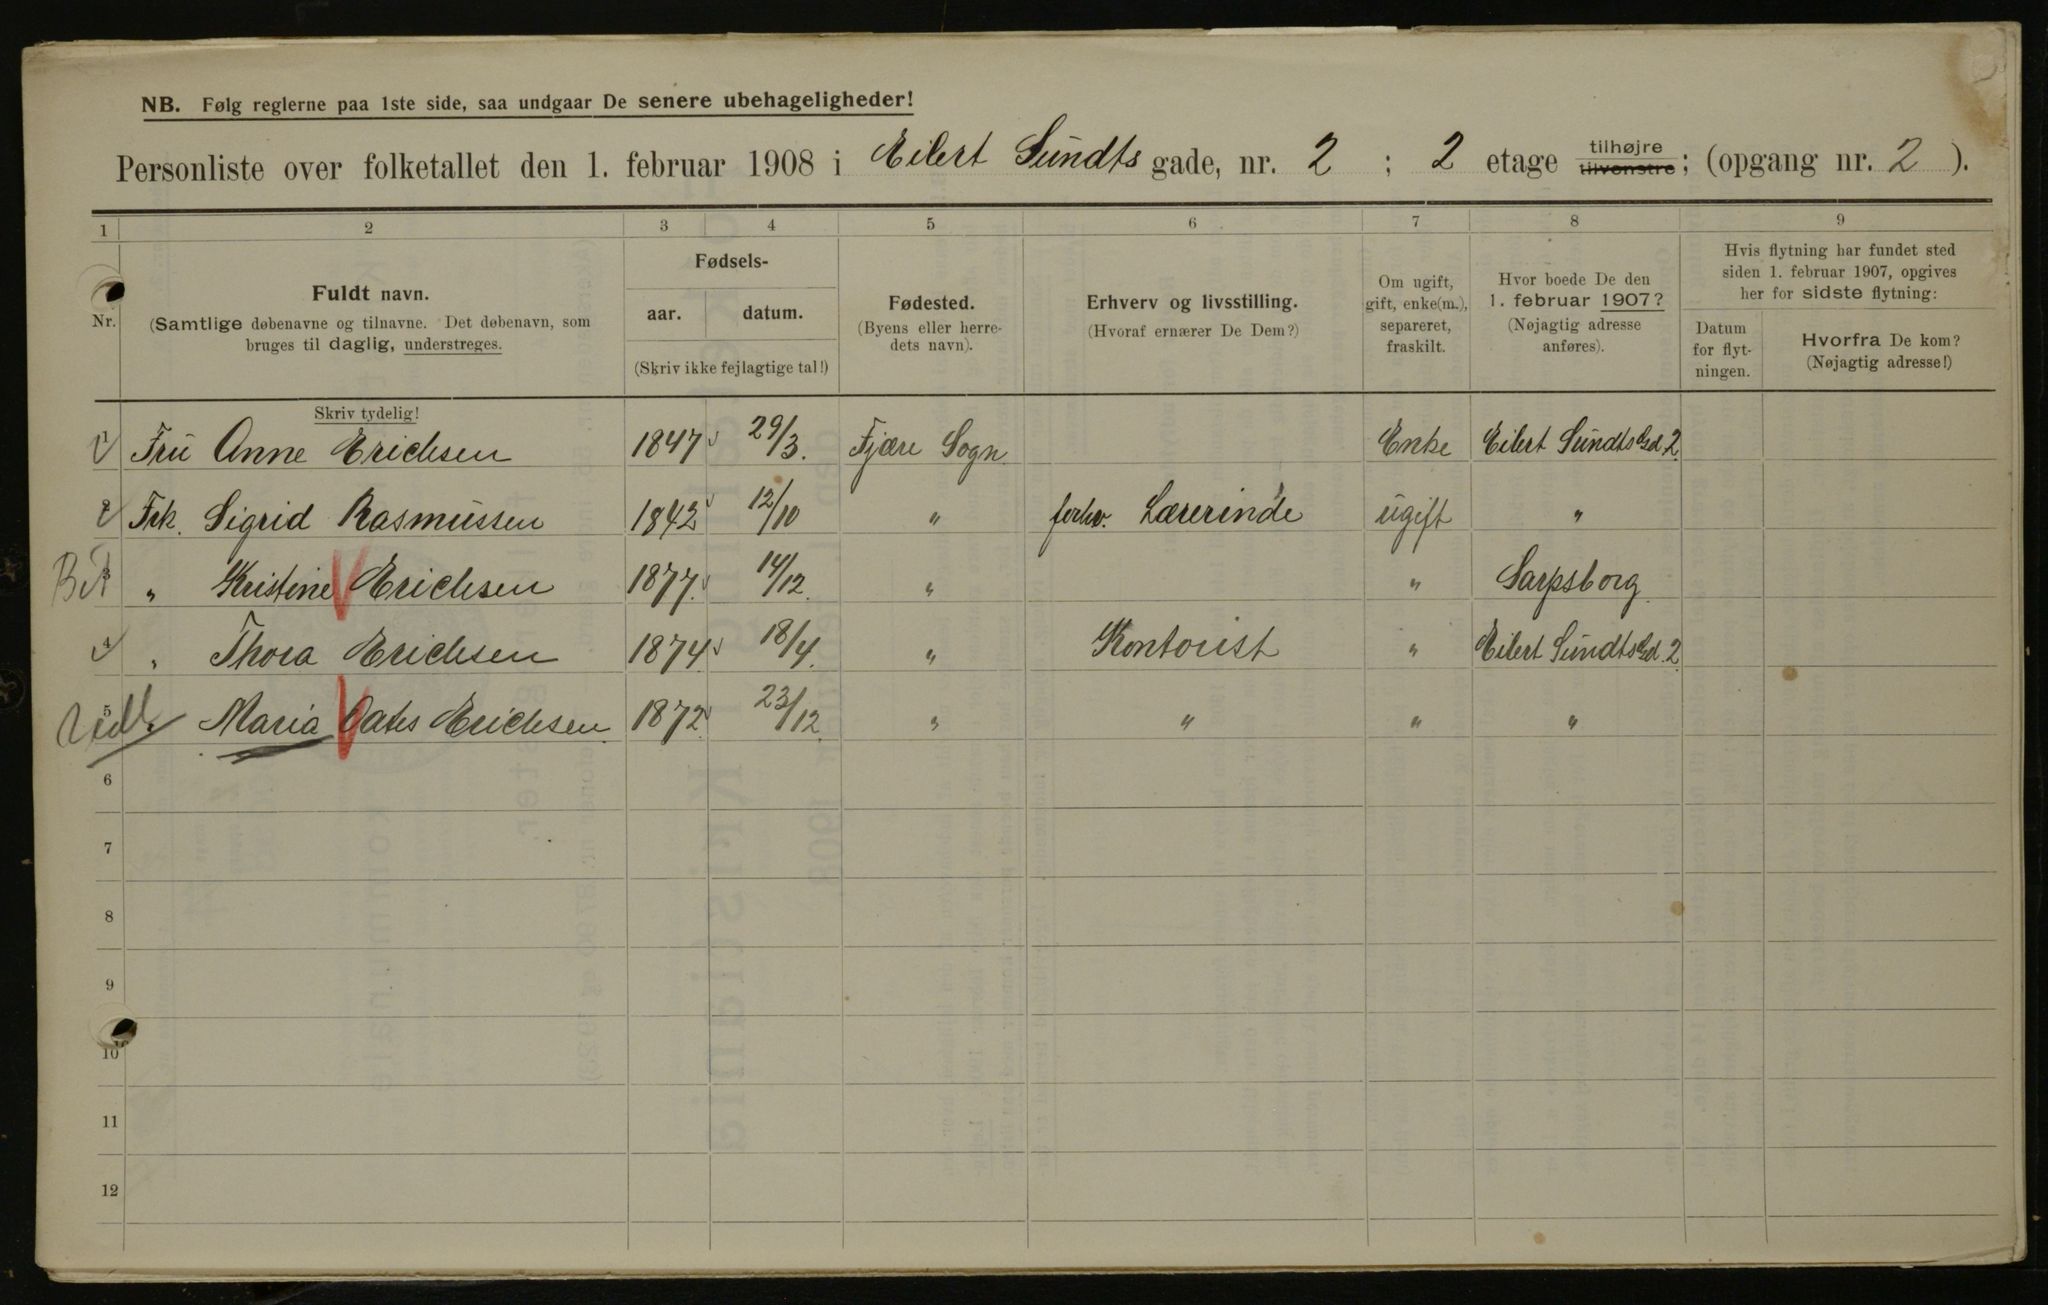 NB. Følg reglerne paa 1ste side, saa undgaar De senere ubehageligheder!
Personliste over folketallet den 1. februar 1908 i Eilert Sundts gade, nr. 2 ; 2 etage tilhøjre tilvenstre ; (opgang nr. 2 ).
1 2 3 4 5 6 7 8 9
Nr.
Fuldt navn.
(Samtlige døbenavne og tilnavne. Det døbenavn, som
bruges til daglig, understreges.
Fødsels-
aar. datum.
(Skriv ikke fejlagtige tal!)
Fødested.
(Byens eller herre-
dets navn).
Erhverv og livsstilling.
(Hvoraf ernærer De Dem?)
Om ugift,
gift, enke(m.),
separeret,
fraskilt.
Hvor boede De den
1. februar 1907?
(Nøjagtig adresse
anføres).
Hvis flytning har fundet sted
siden 1. februar 1907, opgives
her for sidste flytning:
Datum
for flyt-
ningen.
Hvorfra De kom?
(Nøjagtig adresse!)
Skriv tydelig!
1 Fru Anne Erichsen 1847 29/3. Fjære Sogn Enke Eilert Sundts Gd. 2
2 Frk. Sigrid Rasmussen 1842 12/10 " forhv. Lærerinde ugift "
3 " Kristine Erichsen 1877. 14/12. " " Sarpsborg.
4 " Thora Erichsen 1874 18/4. " Kontorist " Eilert Sundts Gd. 2
5 Maria Oates Erichsen. 1872 23/12. " " " "
6
7
8
9
10
11
12